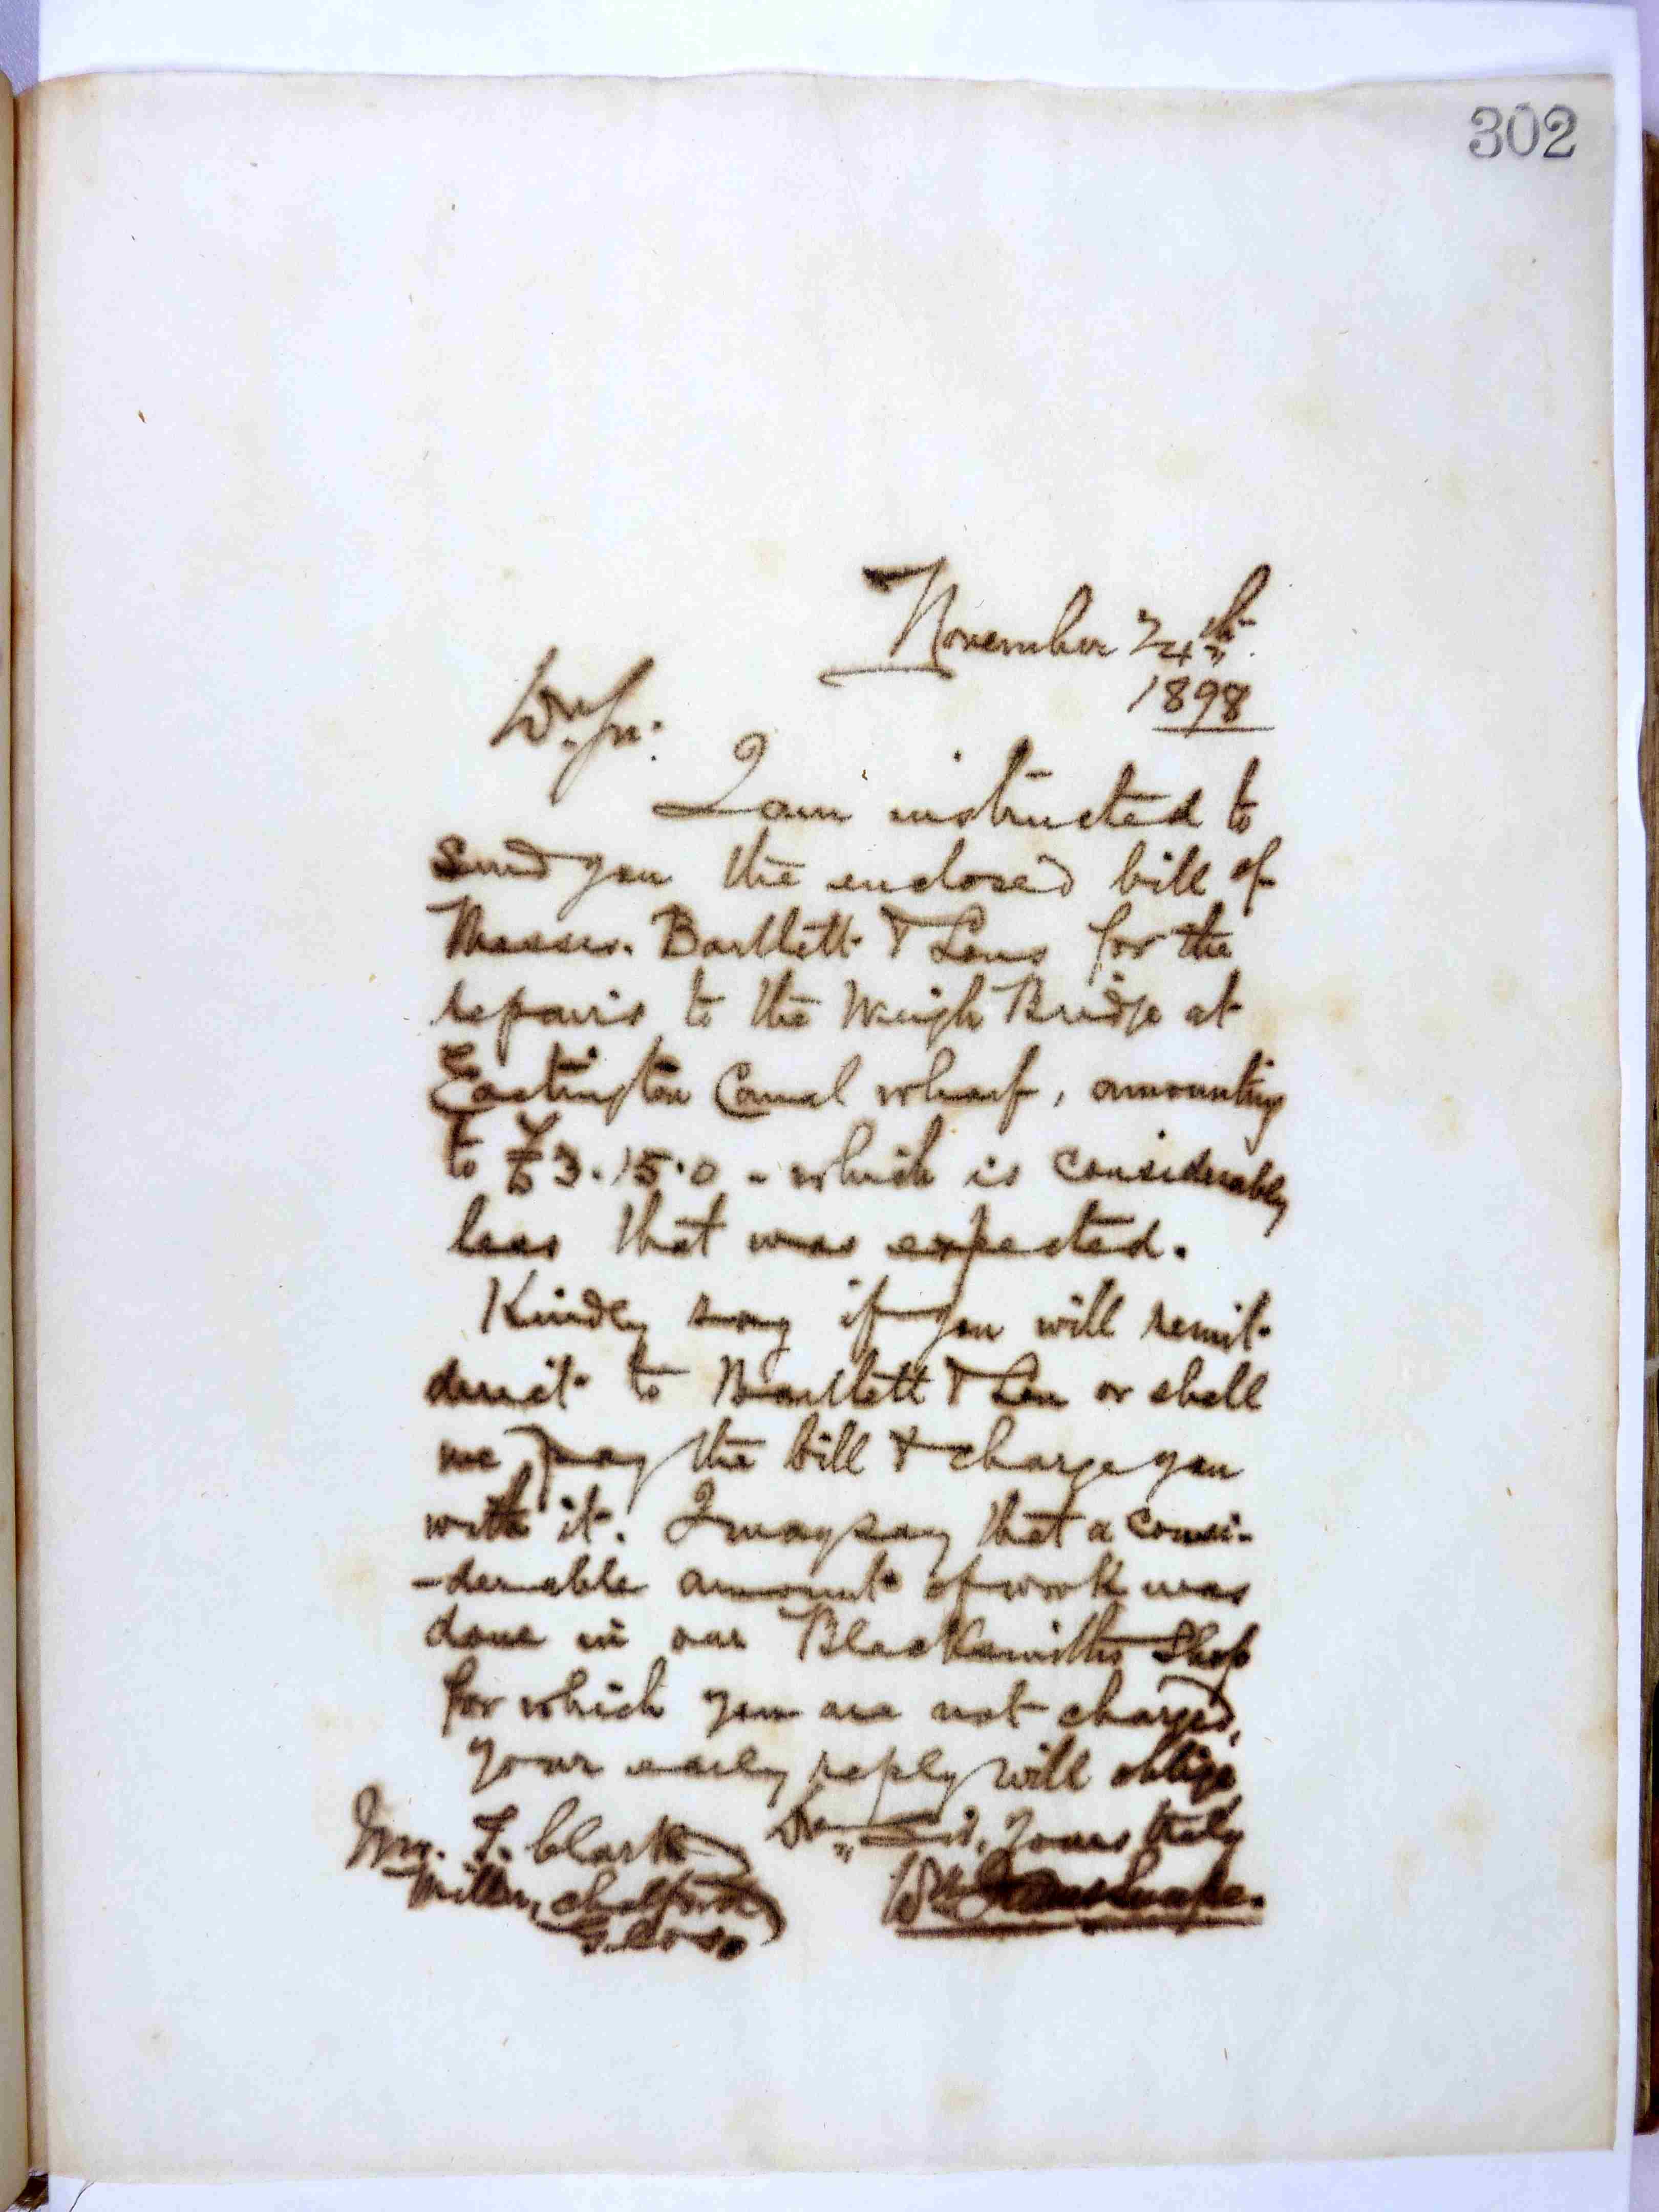 302
November 24th
1898
Dr Sir.
I am instructed to
send you the enclosed bill of
Messrs. Bartlett & Sons for the
repairs to the Weigh Bridge at
Eastington Canal wharf, amounting
to £3.15.0 - which is considerably
less that was expected.
Kindly say if you will remit
direct to Bartlett & Son or shall
we pay the bill & charge you
with it. I may say that a consi-
-derable amount of work was
done in our Blacksmiths Shop
for which you are not charged,
your early reply will oblige
Dr Sir, Yours truly
Mr. T. Clark
Miller, Chalford
Glos.